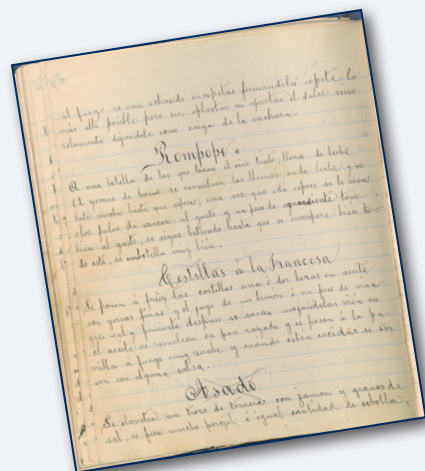 al fuego se van echando en copitas formandoles copete lo
más alto posible pero sin aplastar ni apretar el dulce sino
solamente dejandole como caiga de la cuchara.
Rompope.
A una botella de las que traen el vino tinto, llena de leche
12 yemas de huevo se revuelven las yemas en la leche y se
bate mucho hasta que espese; una vez que está espeso se le
clor polvo de azucar al gusto y un poco de aguardiente tam-
bien al gusto, se sigue batiendo hasta que se incorpore bien to-
do esto, se embotella muy bien.
Costillas á la Francesa
Se ponen á freir las costillas una ó dos horas en aceite
con yervas finas y el jugo de un limon ó un poco de vina
gre sal y pimienta despues se sacan mojandolas bien en
el aceite se revuelcan en pan rayado y se posan á la pa
rrilla á fuego muy suave y cuando estén cocidas se sir
ven con alguna salsa.
Asado
Se clavetea un trozo de ternera con jamon y granos de
sal, se pica mucho perejil é igual cantidad de cebolla,